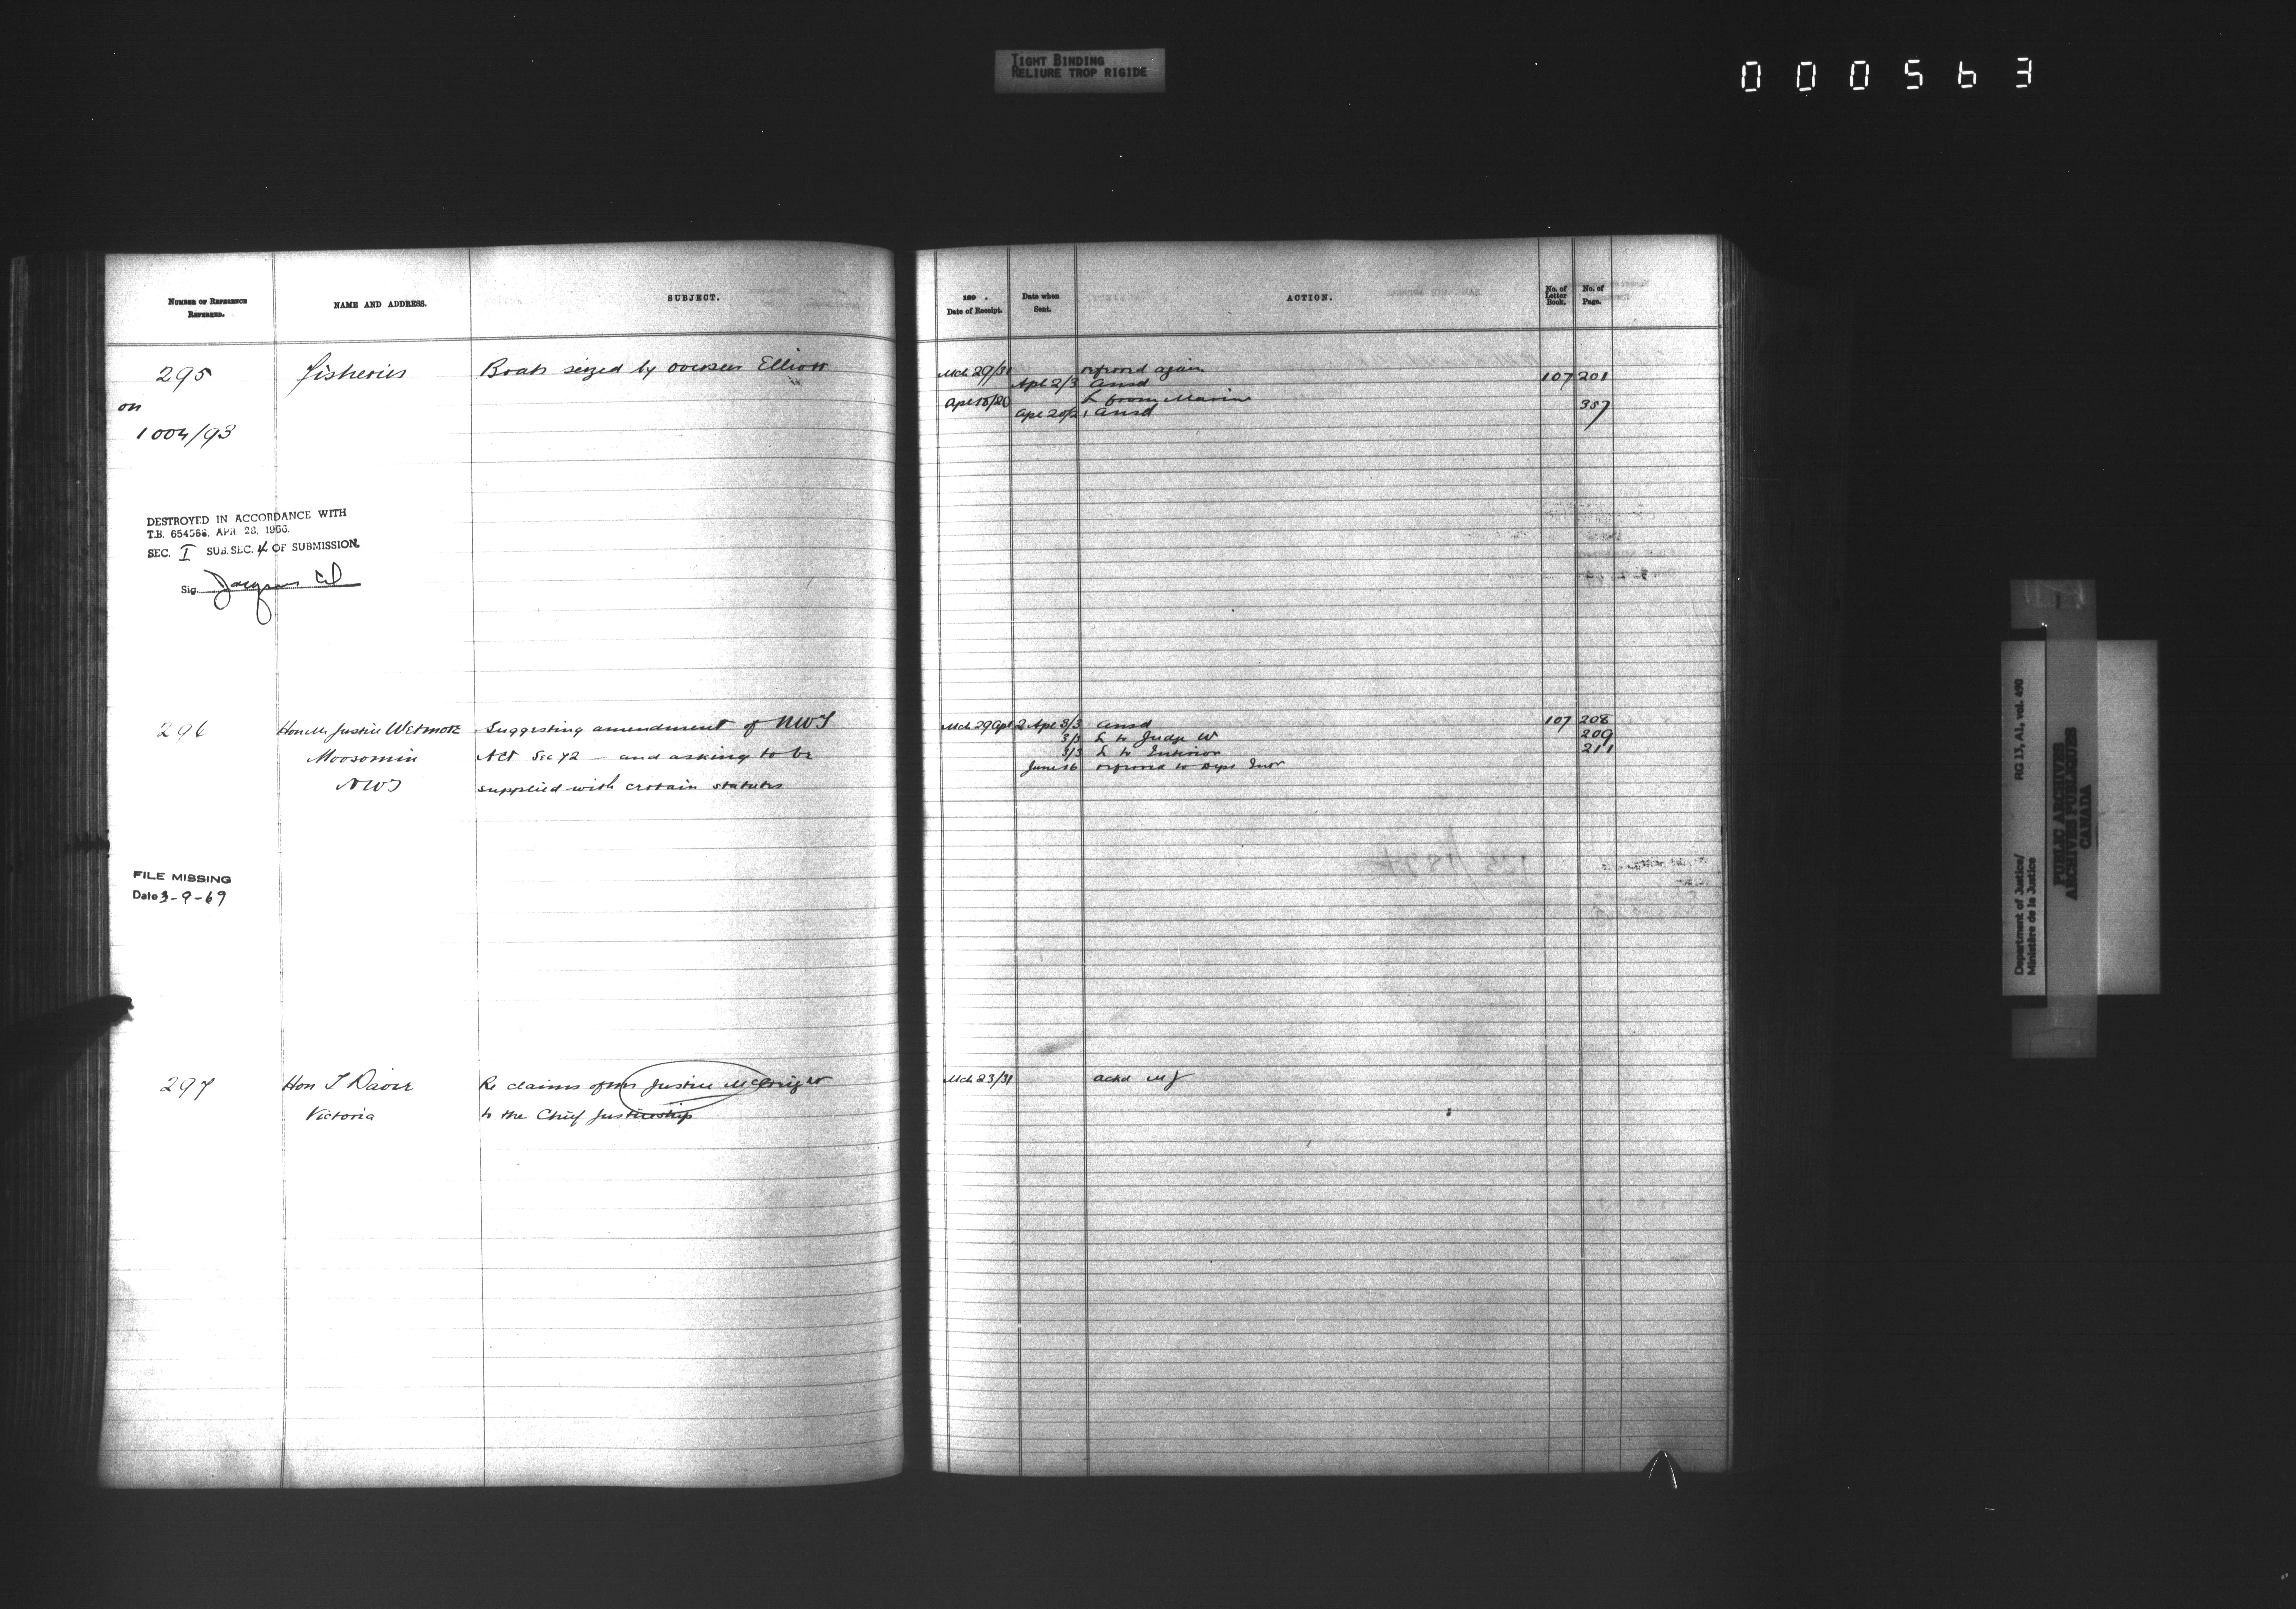 TIGHT BINDING
RELIURE TROP RIGIDE
000563
NUMBER OF REFERENCE
REFERRED.
NAME AND ADDRESS.
SUBJECT.
189 .
Date of Receipt.
Date when
Sent.
ACTION.
No. of
Letter
Book.
No. of
Page.
295
on
1004/93
Fisheries
Boats seized by overseer Elliott
Mch 29/31 referred again
Apl 2/3 ansd 107 201
Apl 18/20 L from Marine
Apl 20/21 ansd 357
DESTROYED IN ACCORDANCE WITH
T.B. 654566, APR. 28, 1966.
SEC. I SUB.SEC. 4 OF SUBMISSION.
Sig.
296
Hon Mr Justice Wetmore
Moosomin
NWT
Suggesting amendment of NWT
Act Sec 72 – and asking to be
supplied with certain statutes
Mch 29 Apl 2 Apl 3/3 ansd 107 208
3/3 L to Judge W 209
3/3 L to Interior 211
June 16 referred to Dept Intr
FILE MISSING
Date 3-9-69
297
Hon T Davie
Victoria
Re claims of Mr Justice McCreight
to the Chief Justiceship
Mch 23/31 ackd MJ
Department of Justice/
Ministère de la Justice
RG 13, A1, vol. 490
PUBLIC ARCHIVES
ARCHIVES PUBLIQUES
CANADA